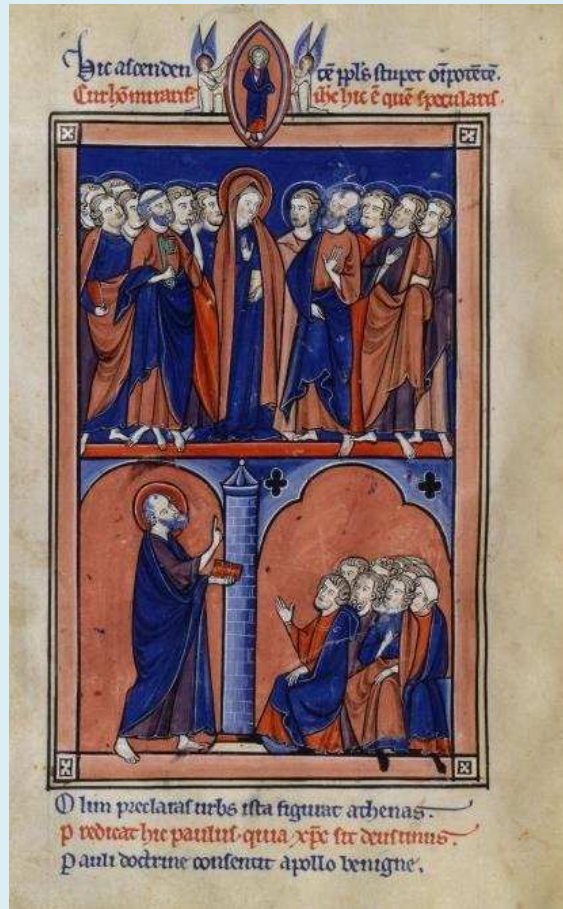 Hic ascenden tē ppl's stupet oīpotētē.
Cur hōmiraris ihc hic ē quē specularis.
Olim preclaras urbs ista figurat athenas.
Predicat hic paulus. quia xp̄c sit deus unus.
Pauli doctrine consentit apollo benigne.